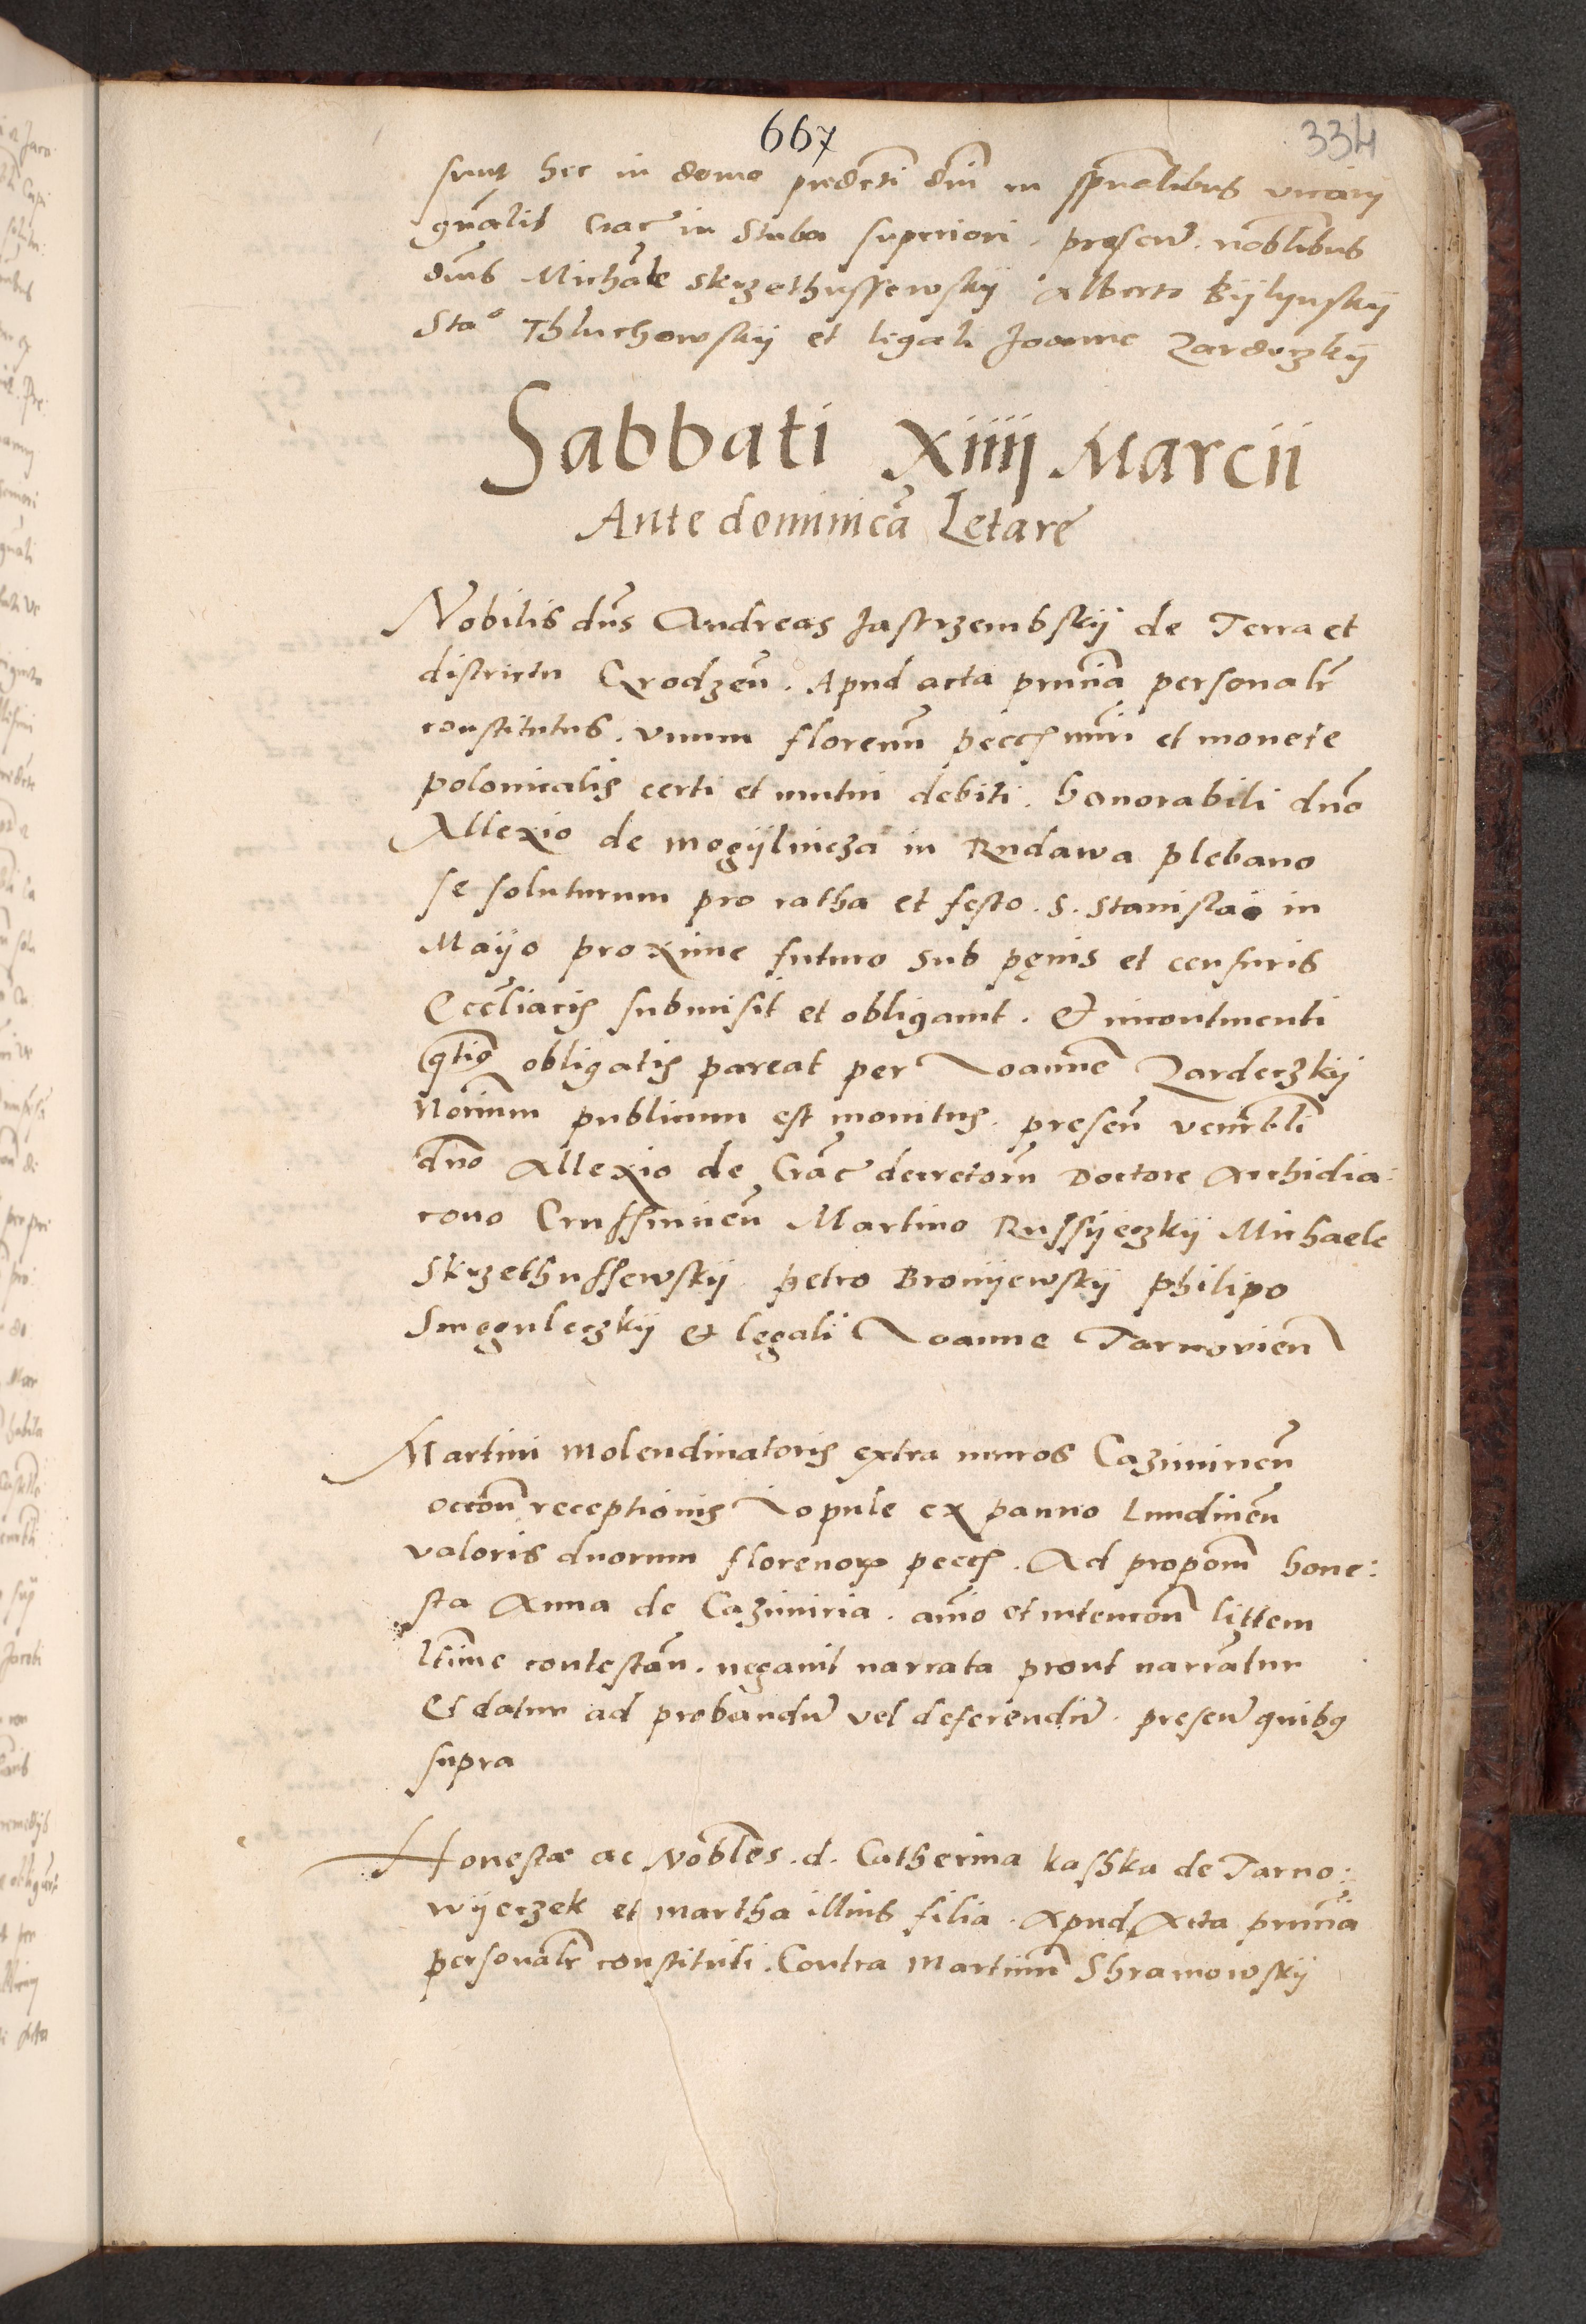 667
334
sunt hec in domo predcti dni in spualibus vicarij
gnalis Crac in stuba superiori . presen . noblibus
dnis Michale Skrzethussewskÿ Alberto Bÿlÿnskÿ
Sta° Thluchowskÿ et legali Joanne Zardeczkÿ
Sabbati Xiiij Marcii
Ante dominica Letare
Nobilis dns Andreas Jastrzembskÿ de Terra et
districtu Grodzen . Apud acta pnncia personalr
constitutus . vnum florenu pecch nmri et monete
polonicalis certi et mutui debiti . honorabili dno
Allexio de mogÿlnicza in Rudawa plebano
se soluturum pro ratha et festo . S . Stanislao in
Maÿo proxime futuro sub pęnis et censuris
Eccliacis submisit et obligauit . & incontinenti
qtis obligatis pareat per Joanne Zardeczkÿ
Norium publicum est monitus . presen venrbli
dno Allexio de Crac decretoru Doctore Archidia:
cono Crussuicien Martino Russÿeczkÿ Michaele
Skrzethussewskÿ . petro Bronÿewskÿ philipo
Smęguleczkÿ & legali Joanne Tarnovien
Martini molendinatoris extra muros Cazimirien
occon receptionis Jopule ex panno Lundinen
valoris duorum florenor pecch . Ad propom hone:
sta Anna de Cazimiria . anio et intencon littem
ltime contestan . negauit narrata prout narratur
Et datur ad probandu vel deferendu . presen quibg
supra
Honestæ ac Nobles . d . Catherina kashka de Tarno:
wÿeczek et martha illius filia . Apud Acta pnncia
personalr constituti . Contra Martinu Shramowskÿ